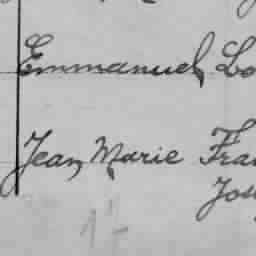 Emmanuel Lo
Jean, Marie Fran
Jou